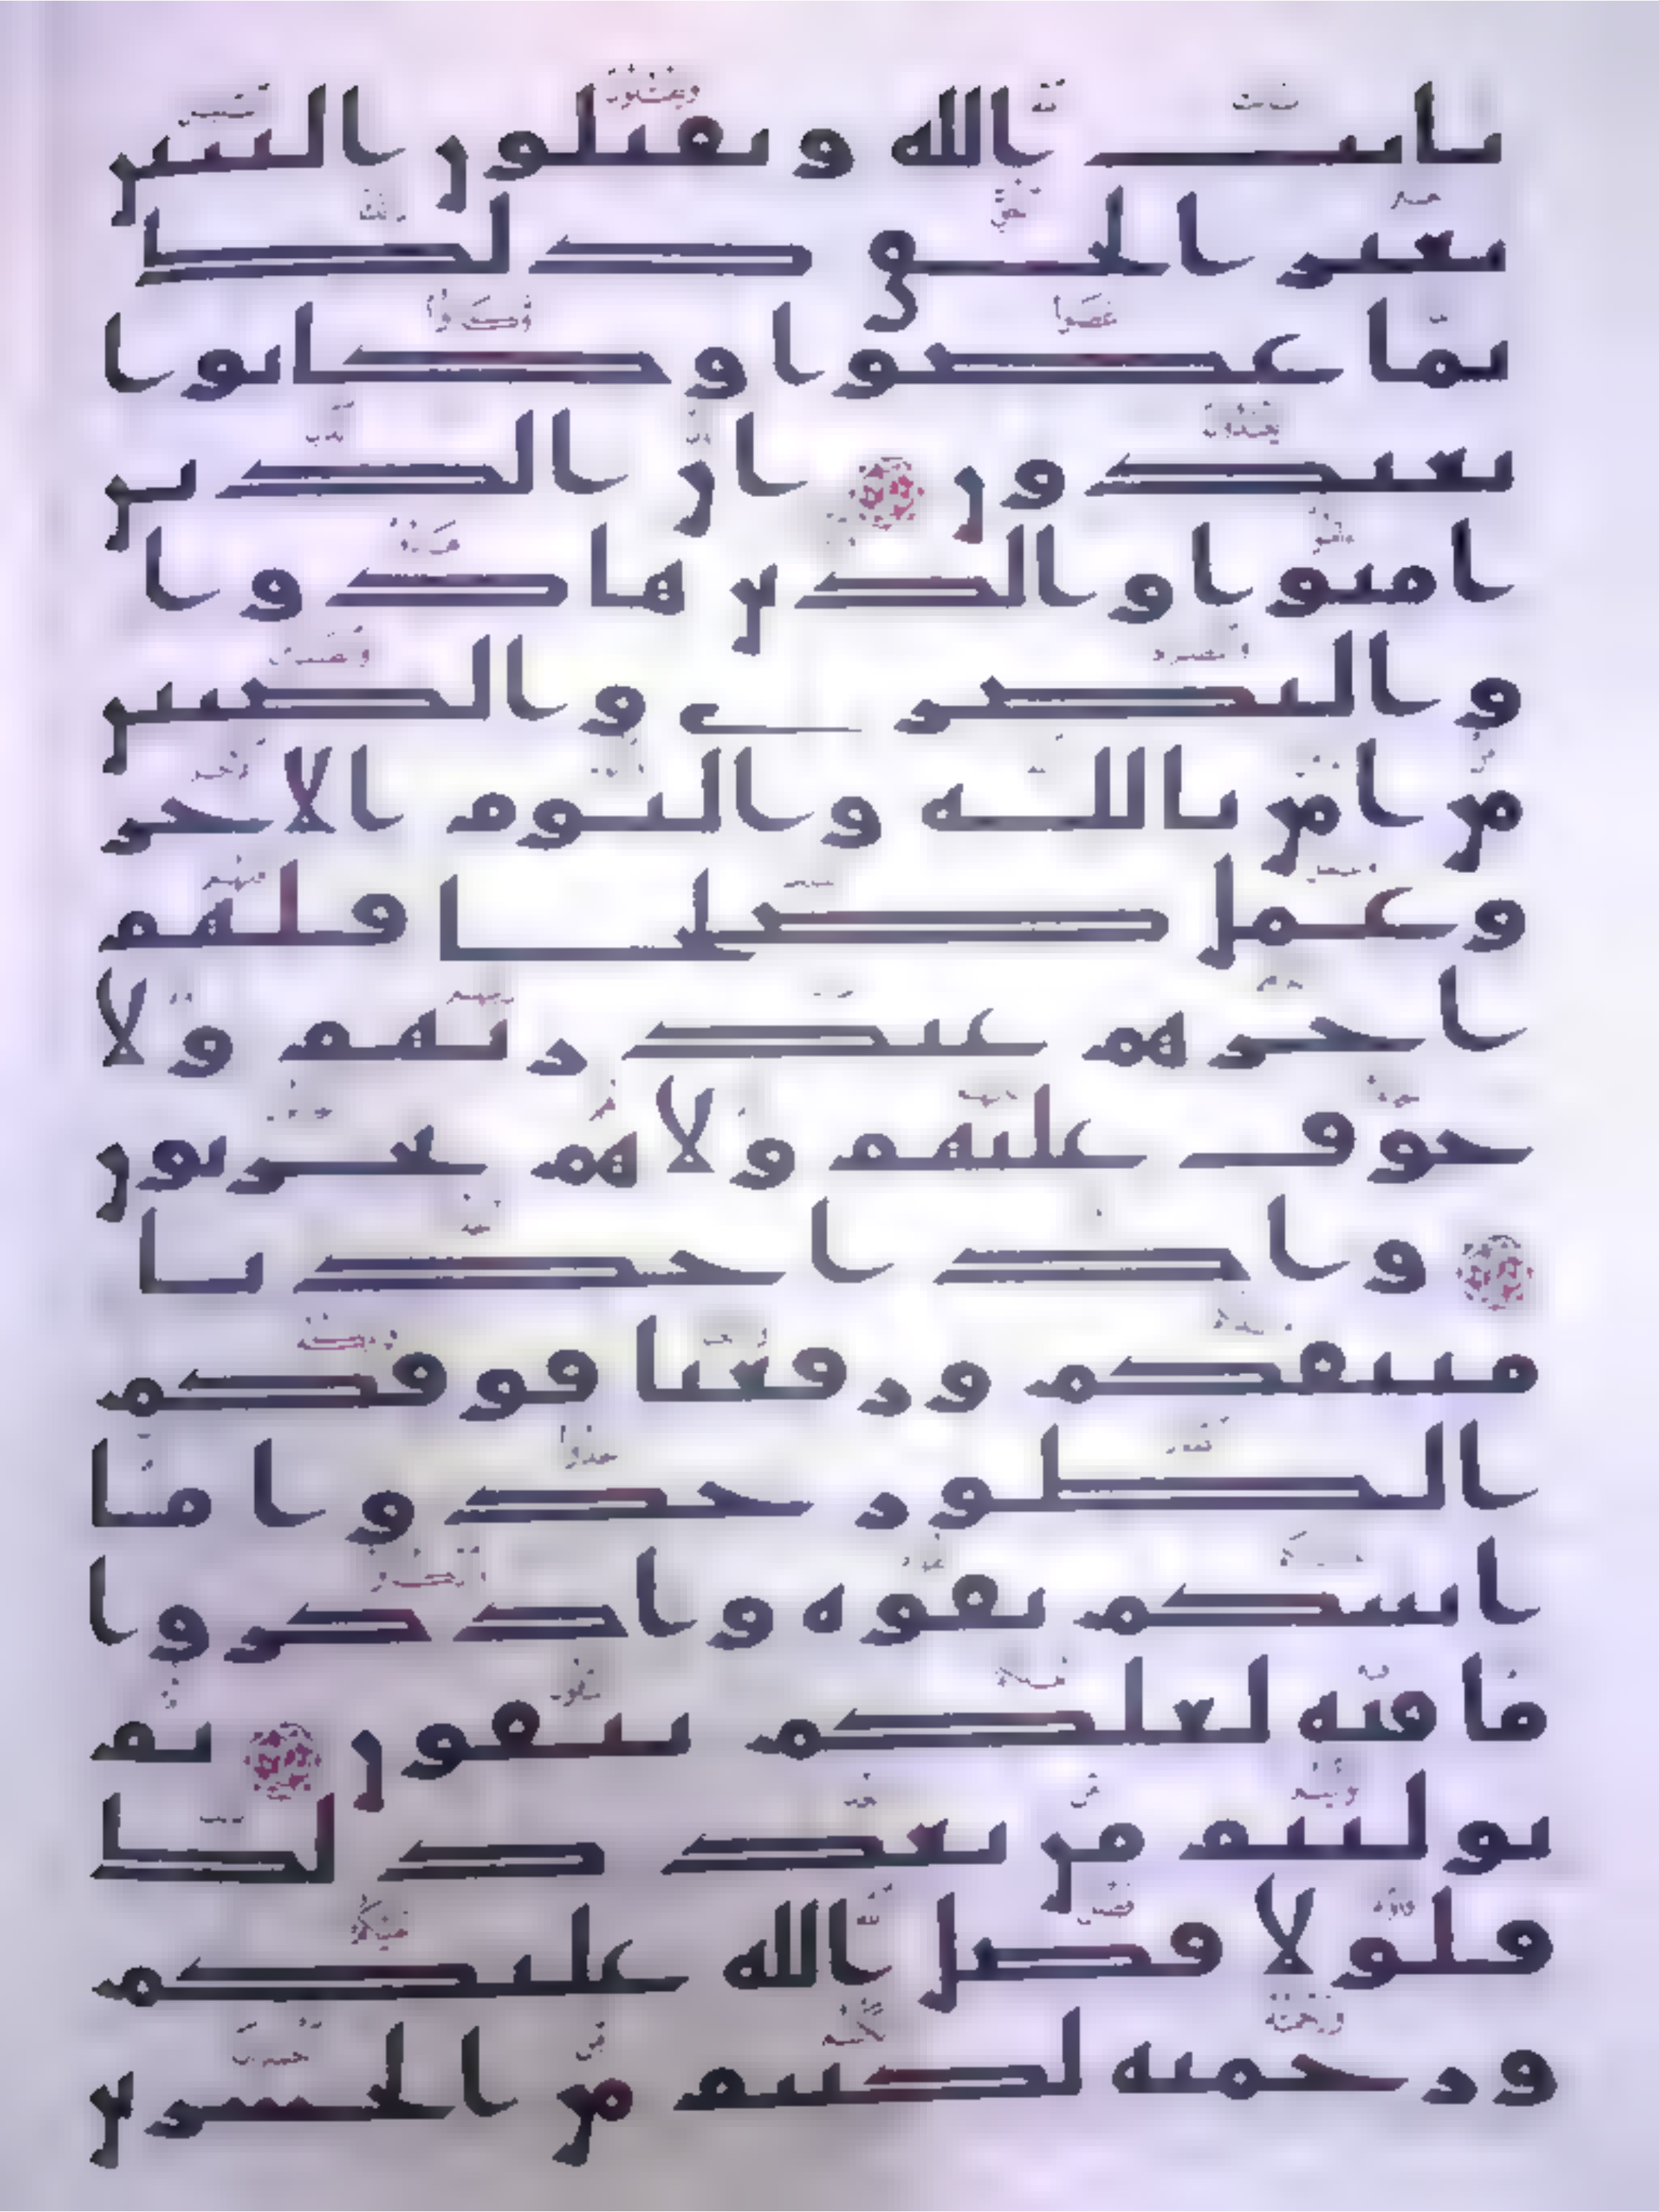 بايت الله ويقتلون النبين
بغير الحق ذلك
بما عصوا وكانوا
يعتدون ان الذين
امنوا والذين هادوا
والنصرى والصبين
من امن بالله واليوم الاخر
وعمل صلحا فلهم
اجرهم عند ربهم ولا
خوف عليهم ولا هم يحزنون
واذ اخذنا
ميثقكم ورفعنا فوقكم
الطور خذوا ما
اتينكم بقوه واذكروا
ما فيه لعلكم تتقون ثم
توليتم من بعد ذلك
فلولا فضل الله عليكم
ورحمته لكنتم من الخسرين